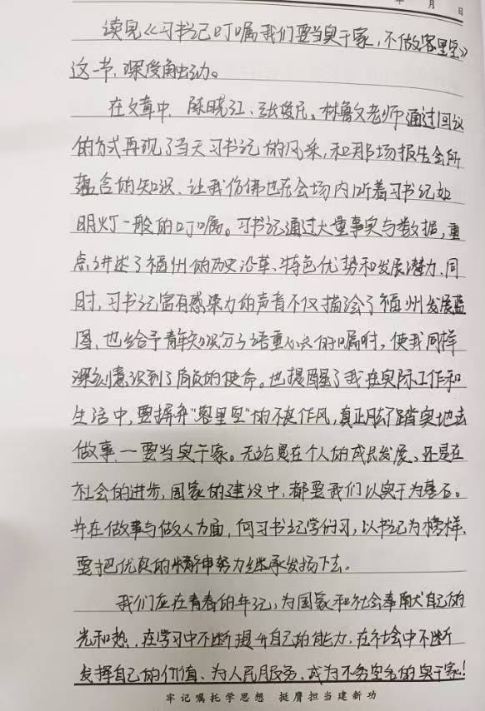 月 日
读完《习书记叮嘱我们要当实干家，不做客里空》
这一节，深受触动。
在文章中，陈晓江、张俊凡、林鲁文老师通过回忆
的方式再现了当天习书记的风采，和那场报告会所
蕴含的知识，让我仿佛也在会场内听着习书记如
明灯一般的叮嘱。习书记通过大量事实与数据，重
点讲述了福州的历史沿革、特色优势和发展潜力。同
时，习书记富有感染力的声音不仅描绘了福州发展蓝
图，也给予青年知识分子语重心长的嘱咐，使我同样
深刻意识到了肩负的使命。也提醒了我在实际工作和
生活中，要摒弃“客里空”的不良作风，真正脚踏实地去
做事——要当实干家。无论是在个人的成长发展、还是在
社会的进步，国家的建设中，都要我们以实干为基石。
并在做事与做人方面，向习书记学习，以书记为榜样，
要把优良的精神努力继承发扬下去。
我们应在青春的年纪，为国家和社会奉献自己的
光和热，在学习中不断提升自己的能力，在社会中不断
发挥自己的价值、为人民服务，成为不务空名的实干家！
牢记嘱托学思想 挺膺担当建新功